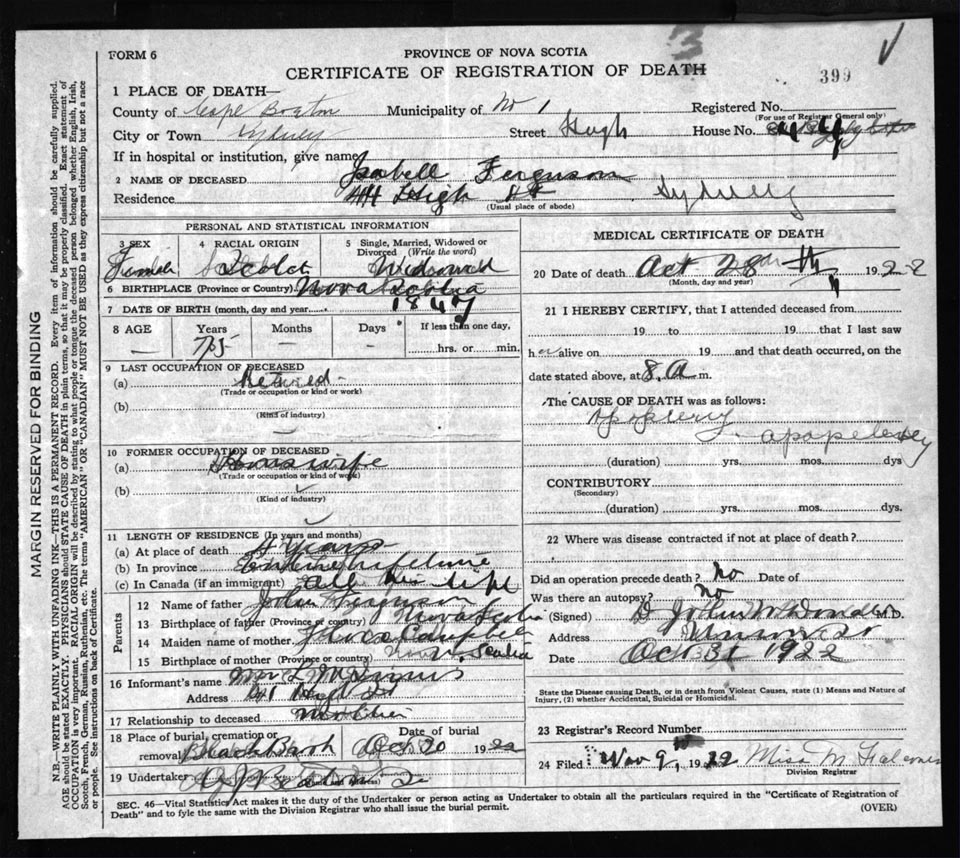 3
FORM 6
PROVINCE OF NOVA SCOTIA
CERTIFICATE OF REGISTRATION OF DEATH
399
1 PLACE OF DEATH—
County of Cape Breton Municipality of No 1 Registered No.
(For use of Registrar General only)
City or Town Sydney Street High House No. 44
If in hospital or institution, give name
2 NAME OF DECEASED Isabell Ferguson
Residence 44 High St. Sydney
(Usual place of abode)
PERSONAL AND STATISTICAL INFORMATION
3 SEX 4 RACIAL ORIGIN 5 Single, Married, Widowed or Divorced (Write the word)
Female Scotch Widowed
6 BIRTHPLACE (Province or Country) Nova Scotia
7 DATE OF BIRTH (month, day and year) 1847
8 AGE Years Months Days If less than one day,
— 75 — — hrs. or min.
9 LAST OCCUPATION OF DECEASED
(a) Retired
(Trade or occupation or kind or work)
(b)
(Kind of industry)
10 FORMER OCCUPATION OF DECEASED
(a) Housewife
(Trade or occupation or kind of work)
(b)
(Kind of industry)
11 LENGTH OF RESIDENCE (In years and months)
(a) At place of death 4 Years
(b) In province Entire lifetime
(c) In Canada (if an immigrant) all her life
Parents
12 Name of father John Ferguson
13 Birthplace of father (Province or country) Nova Scotia
14 Maiden name of mother Campbell
15 Birthplace of mother (Province or country) N. Scotia
16 Informant's name Mrs L
Address High St
17 Relationship to deceased Mother
18 Place of burial, cremation or removal Date of burial
Oct 1922
19 Undertaker
MEDICAL CERTIFICATE OF DEATH
20 Date of death Oct 28 th 1922
(Month, day and year)
21 I HEREBY CERTIFY, that I attended deceased from
19 to 19 that I last saw
her alive on 19 and that death occurred, on the
date stated above, at 8. A m.
The CAUSE OF DEATH was as follows:
(duration) yrs. mos. dys
CONTRIBUTORY
(Secondary)
(duration) yrs. mos. dys.
22 Where was disease contracted if not at place of death?
Did an operation precede death? No Date of
Was there an autopsy? No
(Signed) D John McDonald M.D.
Address
Date Oct 31 1922
State the Disease causing Death, or in death from Violent Causes, state (1) Means and Nature of
Injury, (2) whether Accidental, Suicidal or Homicidal.
23 Registrar's Record Number
24 Filed Nov 9 1922 Miss M
Division Registrar
SEC. 46—Vital Statistics Act makes it the duty of the Undertaker or person acting as Undertaker to obtain all the particulars required in the "Certificate of Registration of
Death" and to fyle the same with the Division Registrar who shall issue the burial permit.
(OVER)
MARGIN RESERVED FOR BINDING
N.B.—WRITE PLAINLY WITH UNFADING INK—THIS IS A PERMANENT RECORD. Every item of information should be carefully supplied.
AGE should be stated EXACTLY. PHYSICIANS should STATE CAUSE OF DEATH in plain terms, so that it may be properly classified. Exact statement of
OCCUPATION is very important. RACIAL ORIGIN will be described by stating to what people or tongue the deceased person belonged whether English, Irish,
Scotch, French, German, Russian, Ruthenian, etc. The terms "AMERICAN" OR "CANADIAN" MUST NOT BE USED as they express citizenship but not a race
or people. See instructions on back of Certificate.